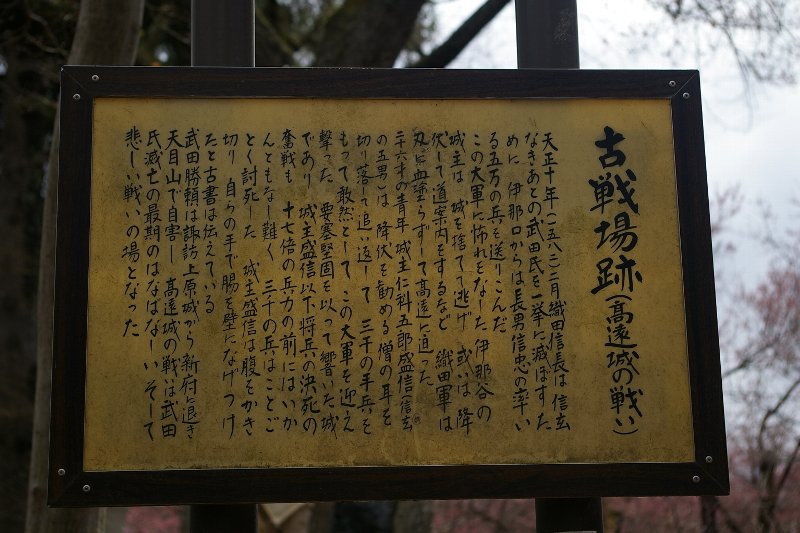 古戦場跡(高遠城の戦い)
天正十年(一五八二)二月織田信長は信玄
なきあとの武田氏を一挙に滅ぼすた
めに 伊那口からは長男信忠の率い
る五万の兵を送りこんだ
この大軍に怖れをなした伊那谷の
城主は 城を捨てて逃げ 或いは降
伏して道案内をするなど 織田軍は
刃に血塗らずして高遠に迫った
二十六才の青年城主仁科五郎盛信(信玄
の五男)は 降伏を勧める僧の耳を
切り落て追い返して 三千の手兵を
もって敢然として この大軍を迎え
撃った 要塞堅固を以って響いた城
であり 城主盛信以下将兵の決死の
奮戦も 十七倍の兵力の前にはいか
んともなし難く 三千の兵はことご
とく討死した 城主盛信は腹をかき
切り 自らの手で腸を壁になげつけ
たと古書は伝えている
武田勝頼は諏訪上原城から新府に退き
天目山で自害し 高遠城の戦いは武田
氏滅亡の最期のはなばなしいそして
悲しい戦いの場となった